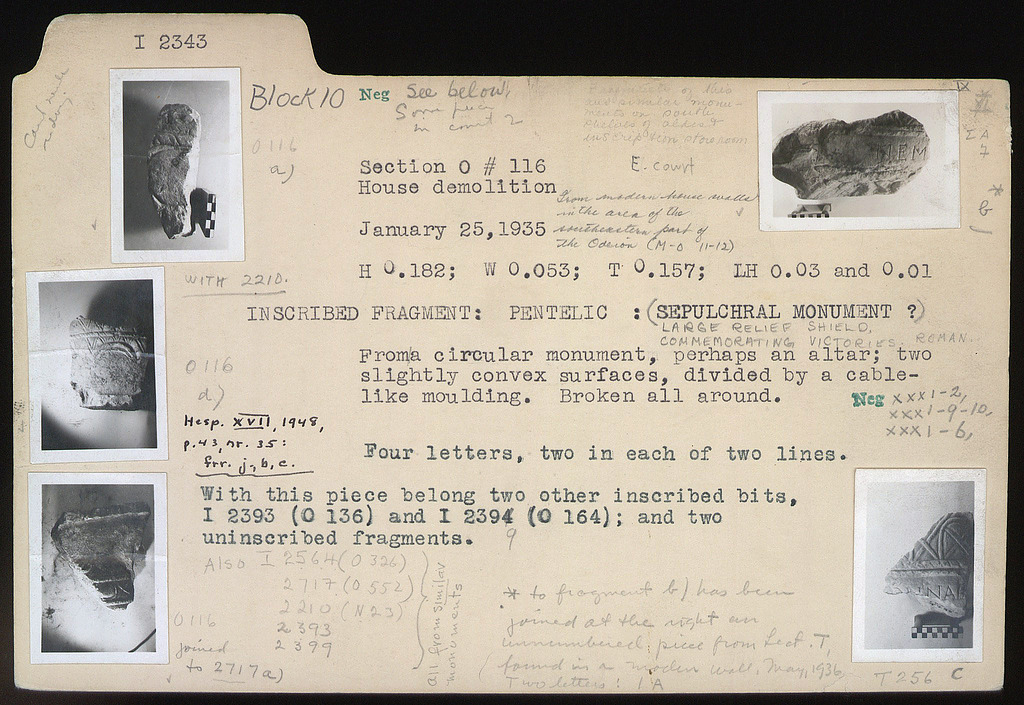 I 2343
Block 10 Neg See below!
Some pieces
in court 2
Fragments of this
and similar monu-
ments on south
shelves of aldest
inscription storeroom
E. court
IX
* XI
ΣA
7
* b)
0116
a)
Section O # 116
House demolition
From modern house walls
in the area of the
southeastern part of
the Odeion (M-O 11-12)
January 25, 1935
H 0.182; W 0.053; T 0.157; LH 0.03 and 0.01
WITH 2210.
INSCRIBED FRAGMENT: PENTELIC :(SEPULCHRAL MONUMENT ?)
LARGE RELIEF SHIELD,
COMMEMORATING VICTORIES. ROMAN.
From a circular monument, perhaps an altar; two
slightly convex surfaces, divided by a cable-
like moulding. Broken all around.
Neg XXXI-2,
XXXI-9-10,
XXXI-6,
0116
d)
Hesp. XVII, 1948,
p. 43, nr. 35:
frr. j, b, c.
Four letters, two in each of two lines.
With this piece belong two other inscribed bits,
I 2393 (O 136) and I 2394 (O 164); and two
9
uninscribed fragments.
Also I 2564 (O 326)
2717 (O 552)
2210 (N 23)
2393
2399
All from similar
monuments
0116
joined
to 2717 a)
* to fragment b) has been
joined at the right an
unnumbered piece from Sect. T,
found in a modern wall, May, 1936
Two letters: IA
T 256 C
NEM
NNAI